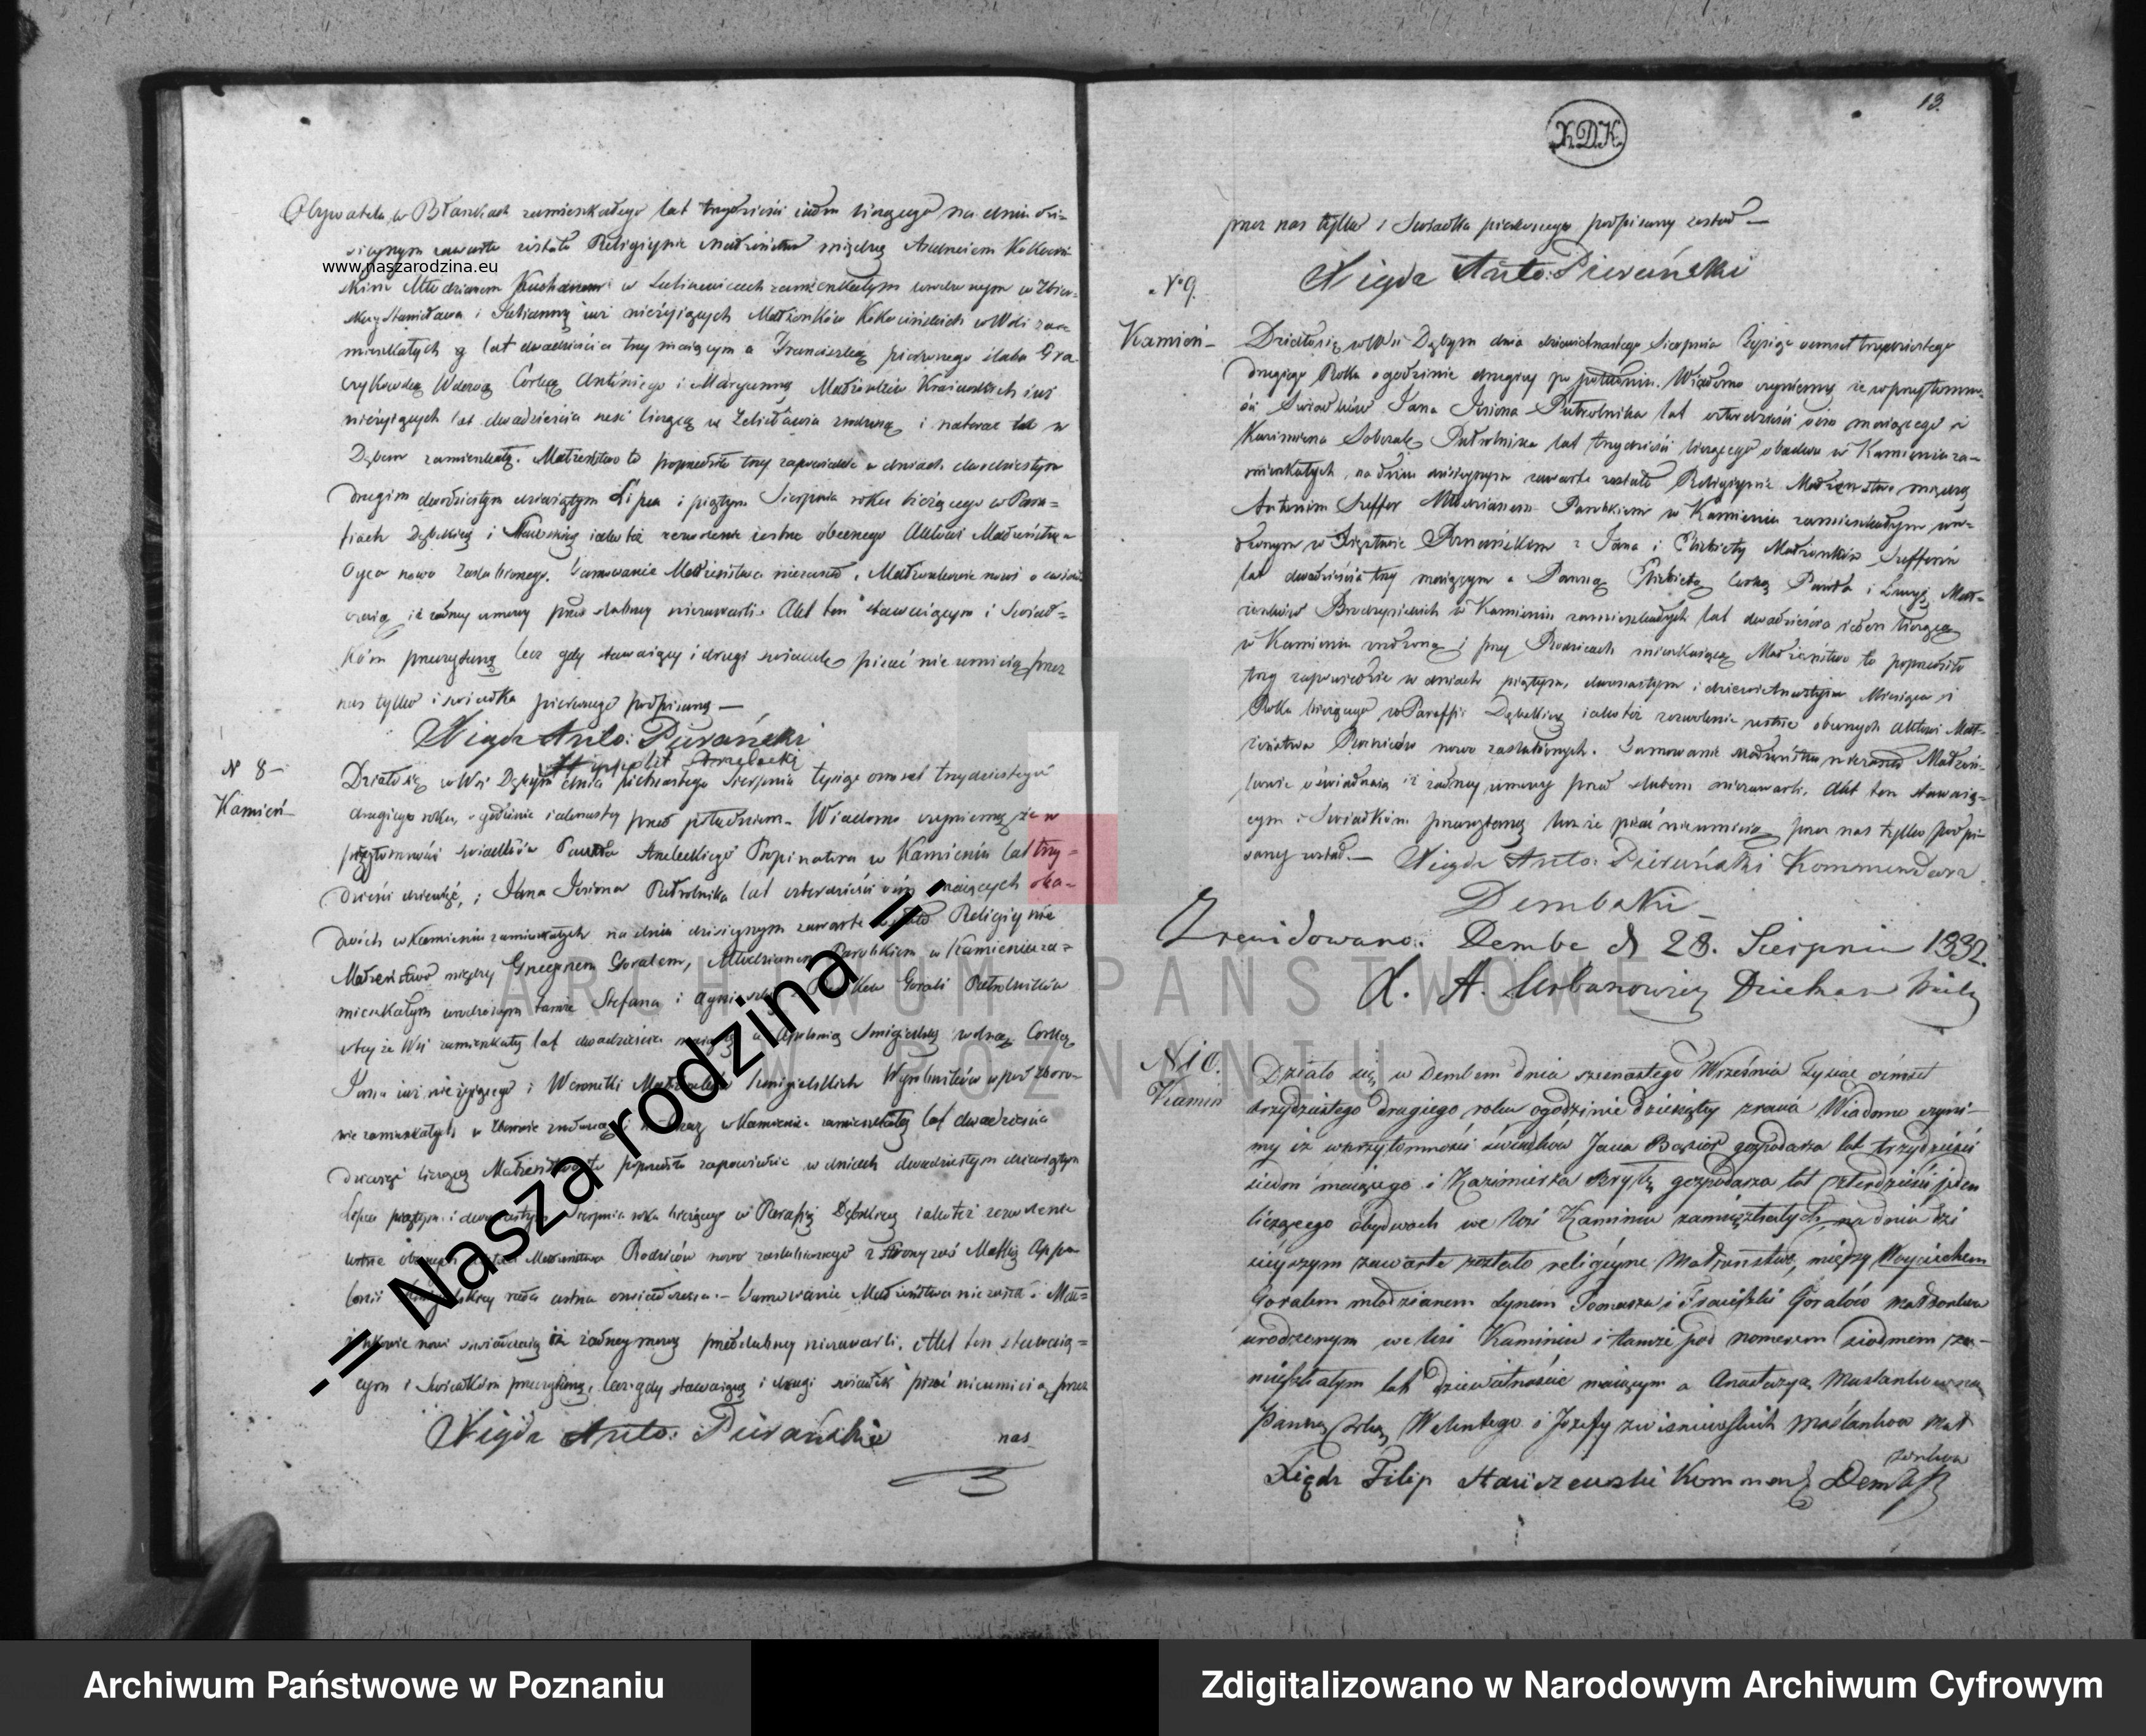 Obywatela w Błaszkach zamieszkałego lat trzydzieści siedm liczącego na dniu dzi-
sieyszym zawarte zostało Religijne Małżeństwo między
www.naszarodzina.eu
Młodzianem w zamieszkałym urodzonym w
Stanisława i Julianny już nieżyjących Małżonków w Woli za-
mieszkałych lat dwadzieścia trzy mającym a Franciszką pierwszego ślubu Gra-
Wdową Córką Antoniego i Maryanny Małżonków już
nieżyjących lat dwadzieścia sześć liczącą w zrodzoną i natenczas w
Dębem zamieszkałą. Małżeństwo to poprzedziły trzy zapowiedzie w dniach dwudziestym
drugim dwudziestym dziewiątym Lipca i piątym Sierpnia roku bieżącego w Para-
fiach Dębskiey i iakoteż zezwolenie ustne obecnego Aktowi Małżeństwa
Oyca nowo Zaślubionego. Tamowanie Małżeństwa nieszaszło, Małżonkowie nowi oświad-
czaią iż żadney umowy przedślubney niezawarli. Akt ten stawaiącym i Świad-
kom przeczytany lecz gdy stawaiący i drugi świadek pisać nie umieią przez
nas tylko i świadka pierwszego podpisany —
Xiądz Anto: Pieruński
N 8 —
Kamień —
Działo się w Wsi Dębym dnia piętnastego Sierpnia tysiąc osmset trzydziestego
drugiego roku, o godzinie iedenastey przed południem. Wiadomo czyniemy że w
przytomności świadków Pawła Propinatora w Kamieniu lat trzy-
dzieści dziewięć, i Jana Półrolnika lat czterdzieści ośm maiących oba-
dwóch w Kamieniu zamieszkałych na dniu dzisieyszym zawarte zostało Religiynie
Małżeństwo między Grzegorzem Goralem, Młodzianem Parobkiem w Kamieniu za-
mieszkałym urodzonym tamże Stefana i Gorali Półrolników
w teyże Wsi zamieszkały lat dwadzieścia a Apolonią Smigielską zrodzoną Córką
Jana iuż nieżyiącego i Weroniki Małżonków Smigielskich Wyrobników
zamieszkałych, w zrodzoną w Kamieniu zamieszkałą lat dwadzieścia
liczącą Małżeństwo to poprzedziły zapowiedzie w dniach dwudziestym dziewiątym
Lipca piątym i dwunastym Sierpnia roku bieżącego w Parafii Dębskiey iakoteż zezwolenie
ustne obecnych Aktowi Małżeństwa Rodziców nowo zaślubionego z strony zaś Matki Appo-
lonii ustna oświadczenia. — Tamowanie Małżeństwa nie zaszło i Mał-
żonkowie nowi oświadczaią iż żadney umowy przedślubney niezawarli. Akt ten stawaią-
cym i Świadkom przeczytany, lecz gdy stawaiący i drugi świadek pisać nieumieią przez
Xiądz Anto: Pieruński
nas
-= Nasza rodzina =-
13.
K.D.K.
przez nas tylko i Swiadka pierwszego podpisany został —
Xiądz Anto: Pieruński
N 9.
Kamień —
Działo się w Wsi Dębym dnia dziewietnastego Sierpnia Tysiąc osmset trzydziestego
drugiego Roku o godzinie drugiey po południu. Wiadomo czyniemy że w przytomno-
ści Swiadków Jana Półrolnika lat czterdzieści ośm maiącego i
Kazimierza Półrolnika lat trzydzieści liczącego obadwa w Kamieniu za-
mieszkałych, na dniu dzisieyszym zawarte zostało Religiynie Małżeństwo między
Antonim Szeffer Młodzianem Parobkiem w Kamieniu zamieszkałym uro-
dzonym w Xięstwie Poznańskim z Jana i Elżbiety Małżonków Szefferów
lat dwadzieścia trzy maiącym a Panną Elżbietą Córką Pawła i Małż-
żonków w Kamieniu zamieszkałych lat dwadzieścia ieden liczącą
w Kamieniu zrodzoną i przy Rodzicach mieszkaiącą Małżeństwo to poprzedziły
trzy zapowiedzie w dniach piątym, dwunastym i dziewietnastym Miesiąca i
Roku bieżącego w Paraffii Dębskiey iakoteż zezwolenie ustne obecnych Aktowi Mał-
żeństwa Rodziców nowo zaślubionych. Tamowanie Małżeństwa nie zaszło Małżon-
kowie oświadczaią iż żadney umowy przed ślubem niezawarli, Akt ten stawaią-
cym i Swiadkom przeczytany lecz że pisać nieumieią przez nas tylko podpi-
sany został. — Xiądz Anto: Pieruński Kommendarz
Dembski —
Zrewidowano. Dembe d 28. Sierpnia 1832.
X. A. Urbanowicz Dziekan
ARCHIWUM PAŃSTWOWE
W POZNANIU
N 10.
Kamin
Działo się w Dembem dnia szesnastego Września Tysiąc ośmset
trzydziestego drugiego roku o godzinie dziesiątey zrana Wiadomo czyni-
my iż w przytomności świadków Jana gospodarza lat trzydzieści
siedm maiącego i Kazimierza gospodarza lat czterdzieści jeden
liczącego obydwóch we Wsi Kaminiu zamięszkałych, na dniu dzi
sieyszym zawarte zostało religiyne Małżeństwo, między Woyciechem
Goralem młodzianem synem Tomasza i Franciszki Goralów małżonków
urodzonym we Wsi Kaminiu i tamże pod numerem siodmem za-
mięszkałym lat dziewiętnaście maiącym a Anastazyą
Panną Corką Walentego i Józefy z Wisniewskich Maślanków mał
żonków
Xiądz Filip Staniszewski Kommend Dembski
Archiwum Państwowe w Poznaniu
Zdigitalizowano w Narodowym Archiwum Cyfrowym